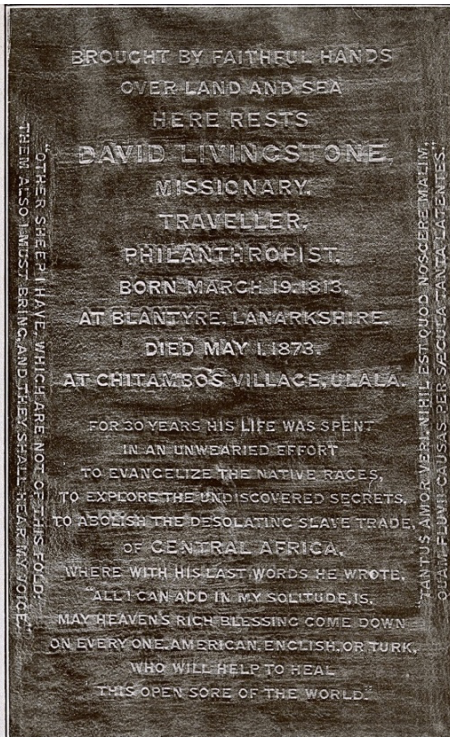 BROUGHT BY FAITHFUL HANDS
OVER LAND AND SEA
HERE RESTS
DAVID LIVINGSTONE,
MISSIONARY,
TRAVELLER,
PHILANTHROPIST.
BORN MARCH 19. 1813.
AT BLANTYRE, LANARKSHIRE,
DIED MAY 1. 1873.
AT CHITAMBO'S VILLAGE, ULALA.
FOR 30 YEARS HIS LIFE WAS SPENT
IN AN UNWEARIED EFFORT
TO EVANGELIZE THE NATIVE RACES,
TO EXPLORE THE UNDISCOVERED SECRETS,
TO ABOLISH THE DESOLATING SLAVE TRADE,
OF CENTRAL AFRICA,
WHERE WITH HIS LAST WORDS HE WROTE,
"ALL I CAN ADD IN MY SOLITUDE, IS,
MAY HEAVEN'S RICH BLESSING COME DOWN
ON EVERY ONE, AMERICAN, ENGLISH, OR TURK,
WHO WILL HELP TO HEAL
THIS OPEN SORE OF THE WORLD."
"OTHER SHEEP I HAVE, WHICH ARE NOT OF THIS FOLD,
THEM ALSO I MUST BRING, AND THEY SHALL HEAR MY VOICE."
"TANTUS AMOR VERI, NIHIL EST QUOD NOSCERE MALIM,
QUAM FLUVII CAUSAS PER SÆCULA TANTA LATENTES."